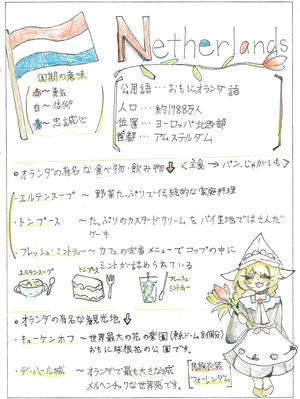 Netherlands
国旗の意味
赤〜勇気
白〜信仰
青〜忠誠心
公用語…おもにオランダ語
人口…約1788万人
位置…ヨーロッパ北西部
首都…アムステルダム
○オランダの有名な食べ物・飲み物↓<主食→パン、じゃがいも>
・エルテンスープ 〜 野菜たっぷりで伝統的な家庭料理
・トンプース 〜たっぷりのカスタードクリームをパイ生地ではさんだ
ケーキ
・フレッシュ・ミントティー〜カフェの定番メニューでコップの中に
ミントが詰められている
エルテンスープ
トンプース
フレッシュ・
ミントティー
○オランダの有名な観光地↓
・キューケンホフ〜世界最大の花の楽園(東京ドーム8個分)
おもに球根花の公園です。
・デ・ハール城 〜オランダで最も大きな城
メルヘンチックな世界感です。
民族衣装
フォーレンダム